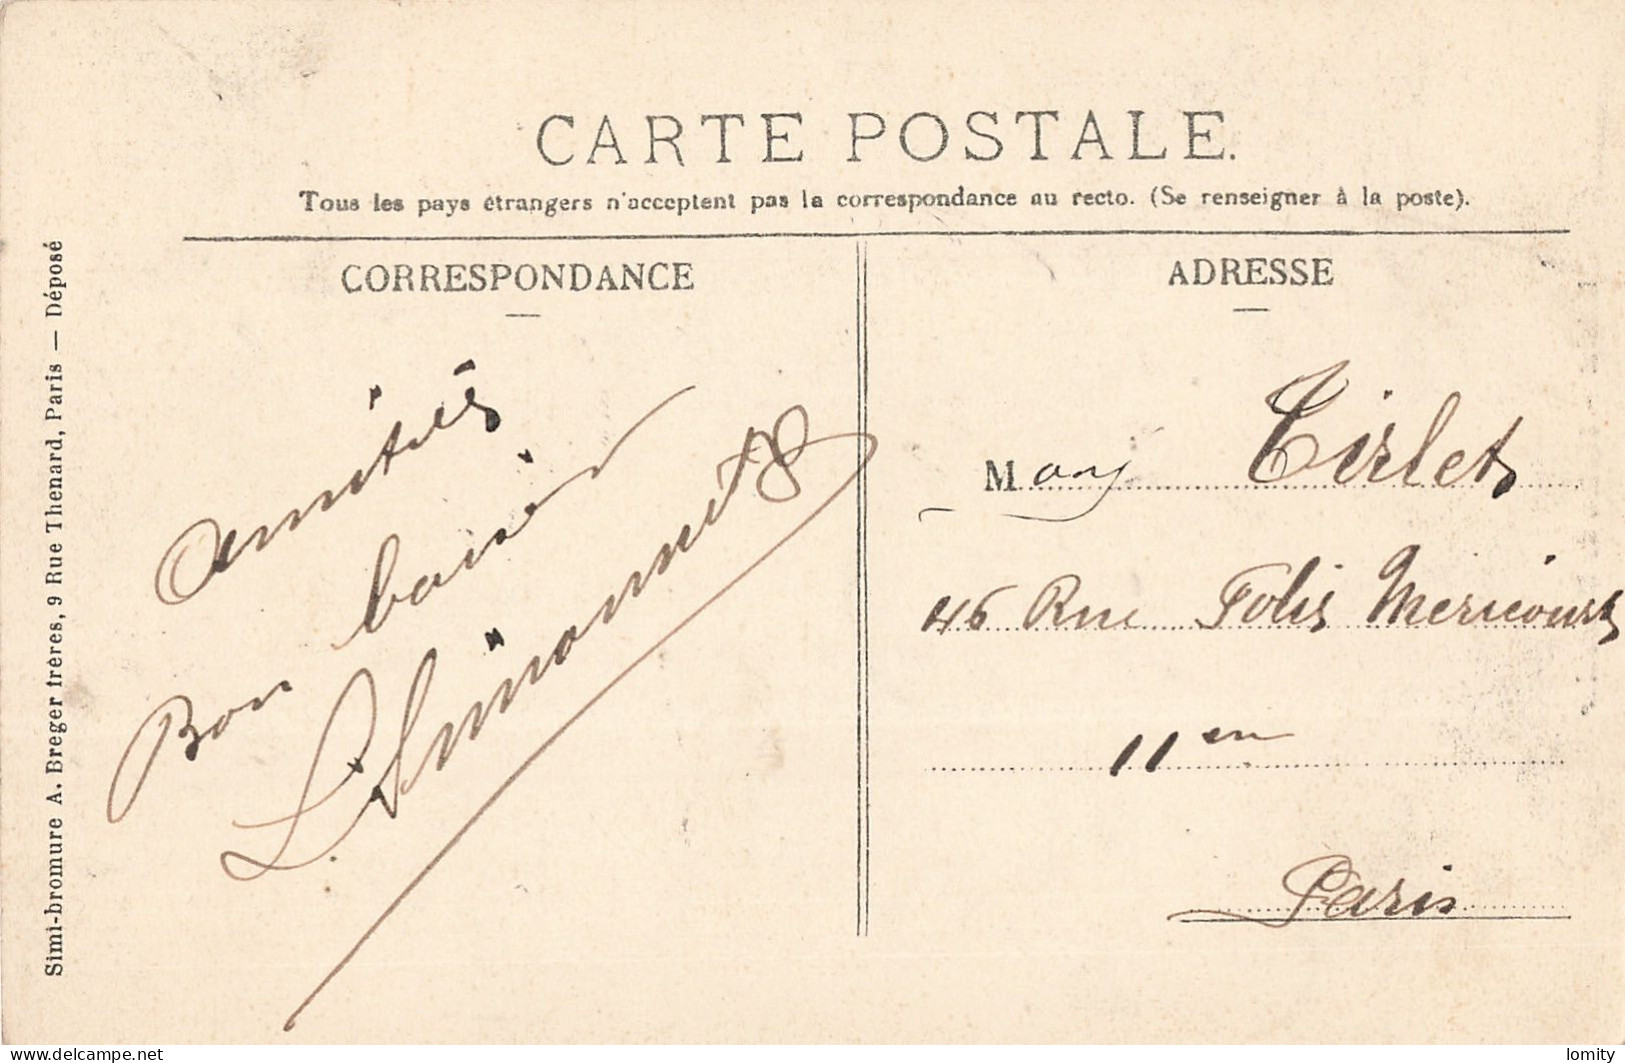 CARTE POSTALE.
Tous les pays étrangers n'acceptent pas la correspondance au recto. (Se renseigner à la poste).
CORRESPONDANCE
amitiés
Bon baiser
ADRESSE
M Tirlet
46 Rue Folis Mericourt
11en
Paris
Simi-bromure A. Breger frères, 9 Rue Thenard, Paris — Déposé
www.delcampe.net
lomity